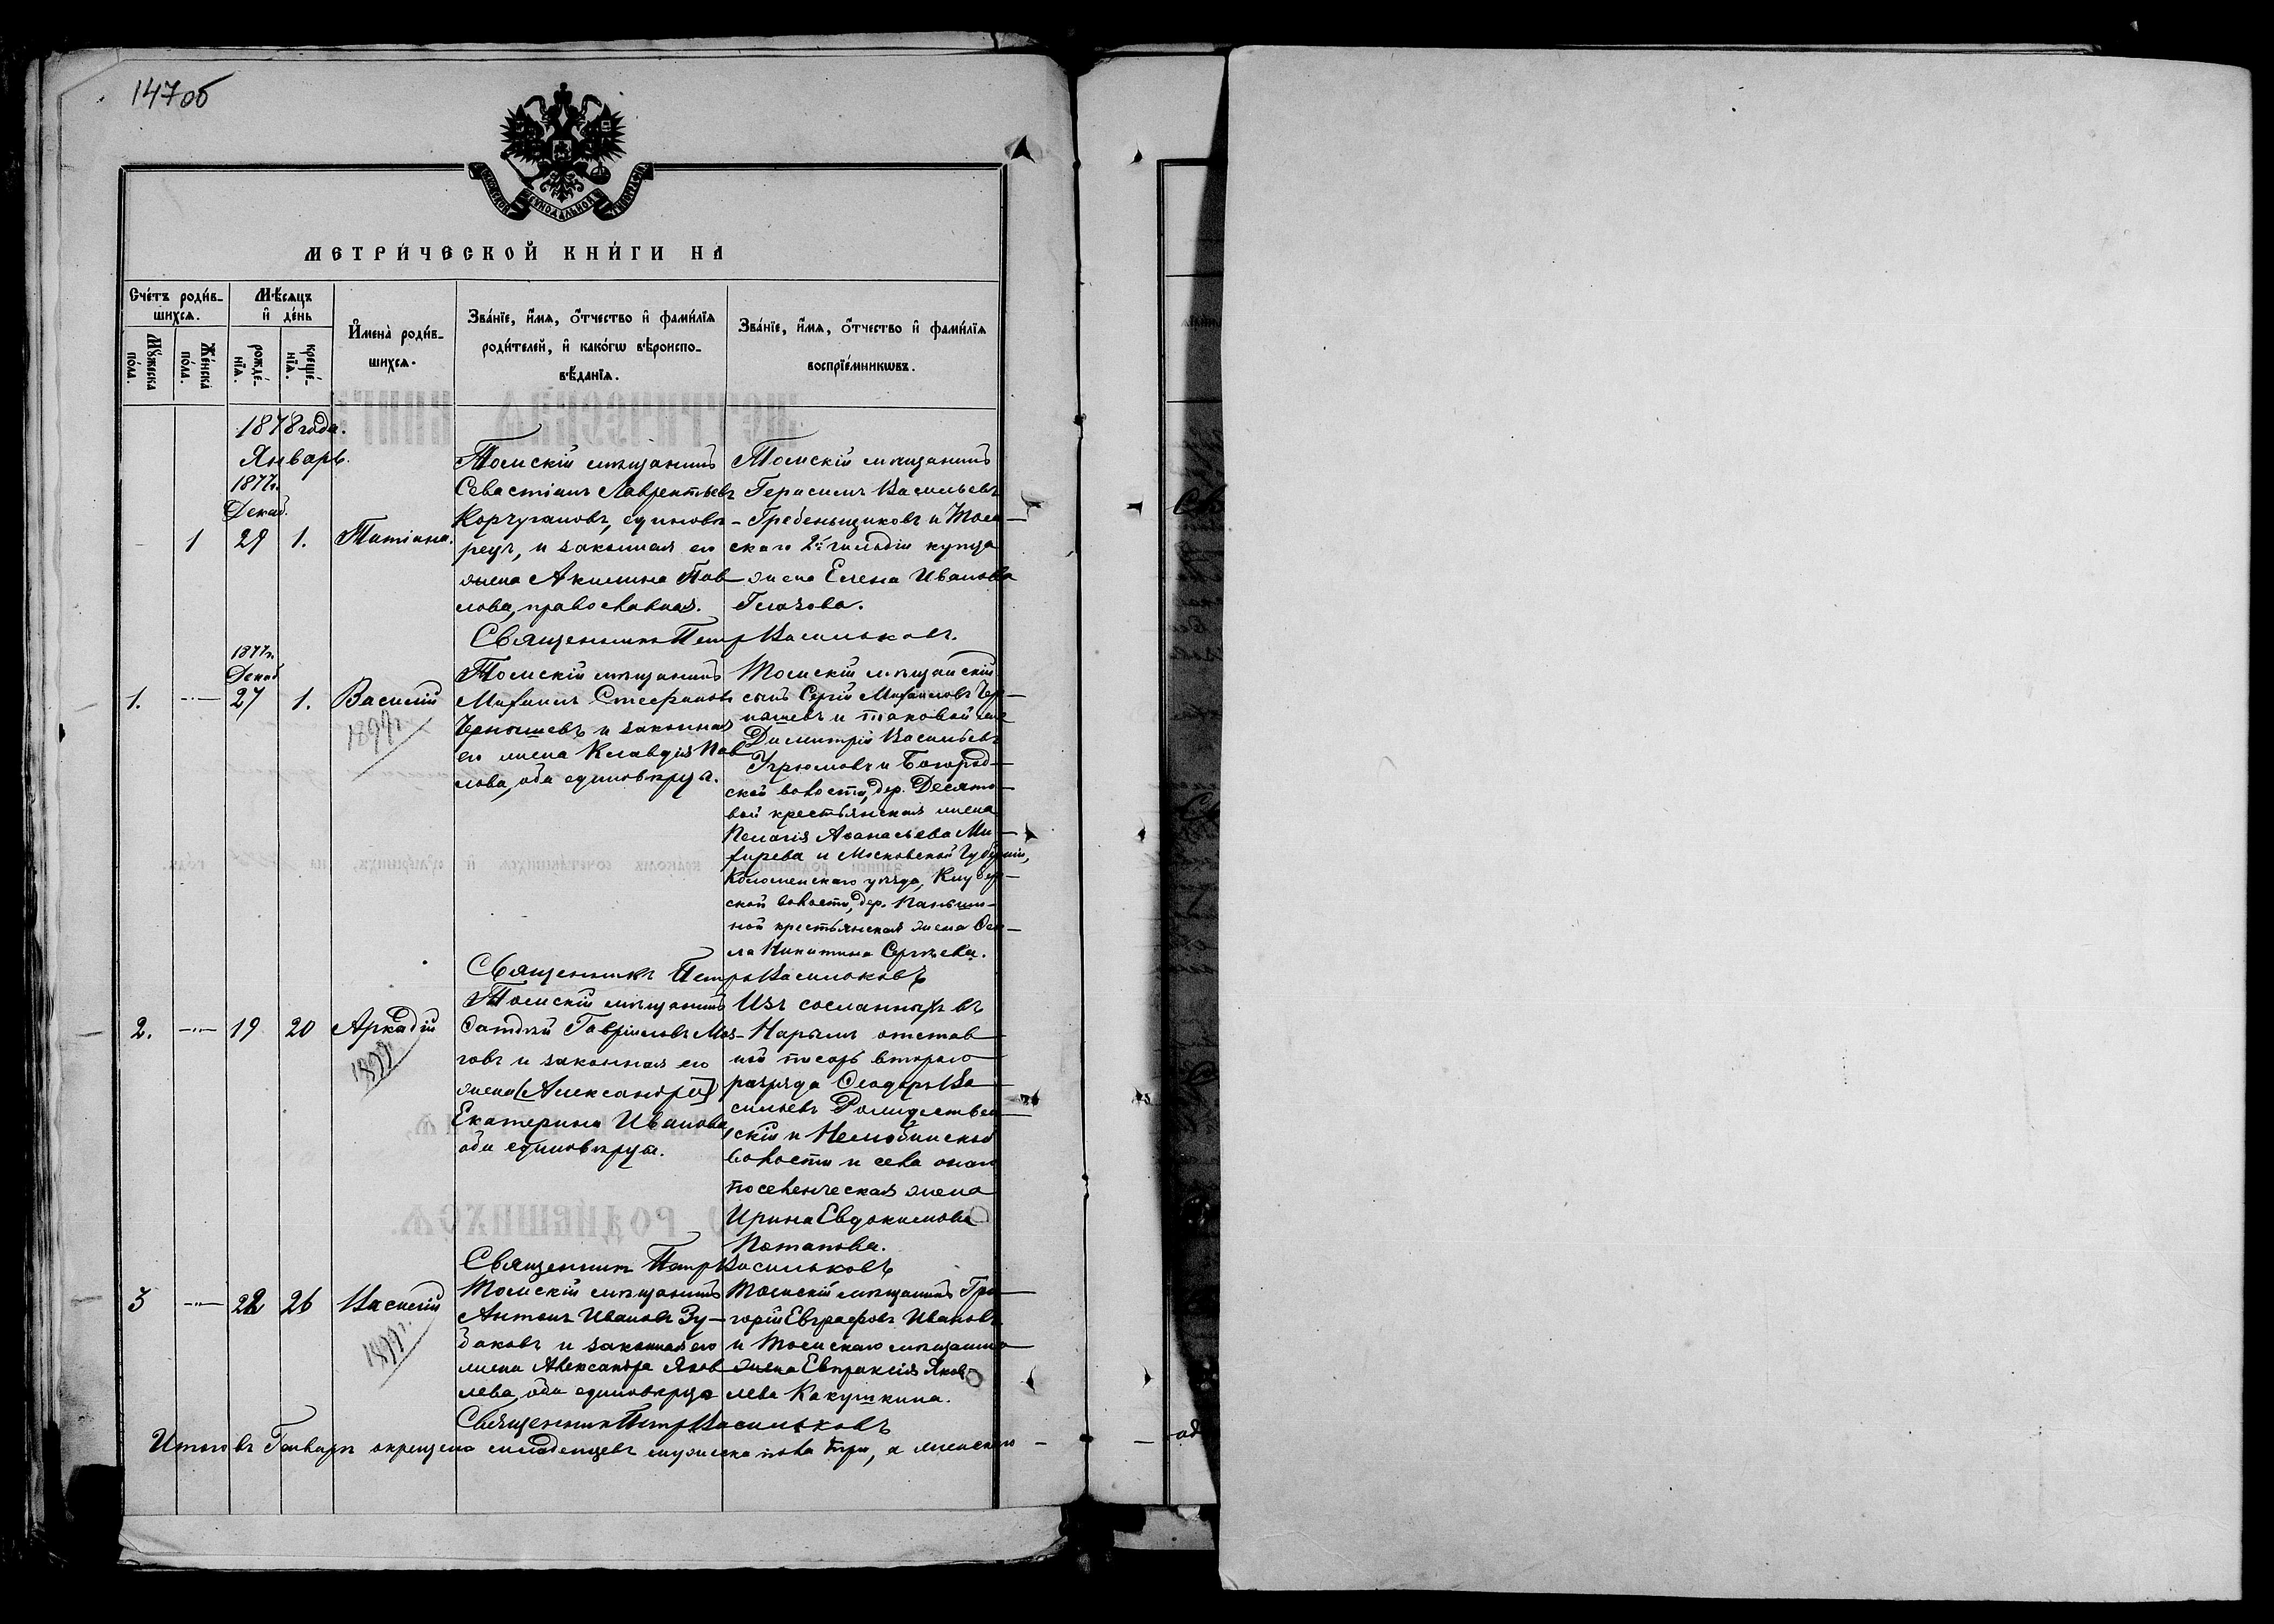 147об
МЕТРИ́ЧЕСКОЙ КНИ́ГИ НА
Сче́тъ роди́в-
шихсѧ.
Мꙋ́жеска по́ла.
Же́нска по́ла.
Мѣ́сяцъ
и҆ де́нь
рожде́-
нїѧ.
креще́-
нїѧ.
И҆мена̀ роди́в-
шихсѧ.
Зва́нїе, и҆́мѧ, ѻ҆́тчество и҆ фами́лїѧ
роди́телей, и҆ како́гѡ вѣроиспо-
вѣ́данїѧ.
Зва́нїе, и҆́мѧ, ѻ҆́тчество и҆ фами́лїѧ
воспрїе́мникѡвъ.
1878 года.
Январь.
1877г.
Декаб.
1
29
1.
Татіана.
Томскій мѣщанинъ
Севастіанъ Лаврентьевъ
Корчугановъ, единовѣ-
рецъ, и законная его
жена Акилина Пав
лова, православная.
Томскій мѣщанинъ
Герасимъ Васильевъ
Гребеньщиковъ и Том-
скаго 2й гильдіи купца
жена Елена Иванова
Глазова.
Священникъ Петръ Васильковъ.
1877г.
Декаб
1.
27
1.
Василій
1899г.
Томскій мѣщанинъ
Михаилъ Стефановъ
Чернышевъ и законная
его жена Клавдія Пав
лова, оба единовѣрцы.
Томскій мѣщанскій
сынъ Сергій Михаиловъ Чер-
нышевъ и таковой же
Димитрій Васильевъ
Угрюмовъ и Богород-
ской волости, дер. Десято-
вой крестьянская жена
Пелагія Аѳанасьева Ми-
хирева и Московской Губерніи,
Коломенскаго уѣзда,
ской волости, дер. Паньши-
ной крестьянская жена Ѳек-
ла Никитина Сергѣева.
Священникъ Петръ Васильковъ
2.
19
20
Аркадій
1899
Томскій мѣщанинъ
Гавріиловъ Моз-
говъ и законная его
жена [Александра]
Екатерина Иванова,
оба единовѣрцы.
Изъ сосланныхъ въ
Нарымъ отстав
ной писарь втораго
разряда Ѳеодоръ Ва
сильевъ Рождествен-
скій и Нелюбинской
волости и села онаго
поселенческая жена
Ирина Евдокимова
Потапова.
Священникъ Петръ Васильковъ
3
22
26
Василій
1899г.
Томскій мѣщанинъ
Антонъ Ивановъ Зу-
баковъ и законная его
жена Александра Яков
лева, оба единовѣрцы
Томскій мѣщанинъ Гри-
горій Евграфовъ Ивановъ
и Томскаго мѣщанина
жена Евпраксія Яков
лева Какушкина.
Священникъ Петръ Васильковъ
Итого въ Генварѣ окрещено младенцевъ мужеска пола три, а женскаго